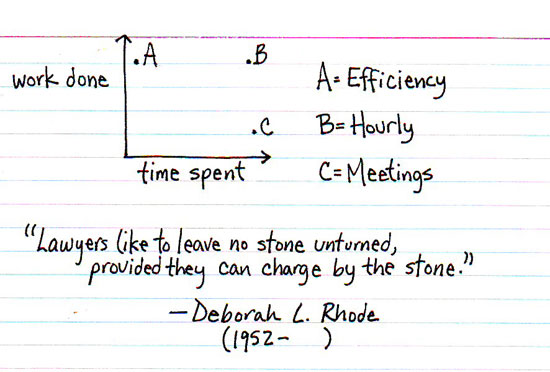 .A
.B
work done
A= Efficiency
.C
B= Hourly
time spent
C= Meetings
"Lawyers like to leave no stone unturned,
provided they can charge by the stone."
— Deborah L. Rhode
(1952- )